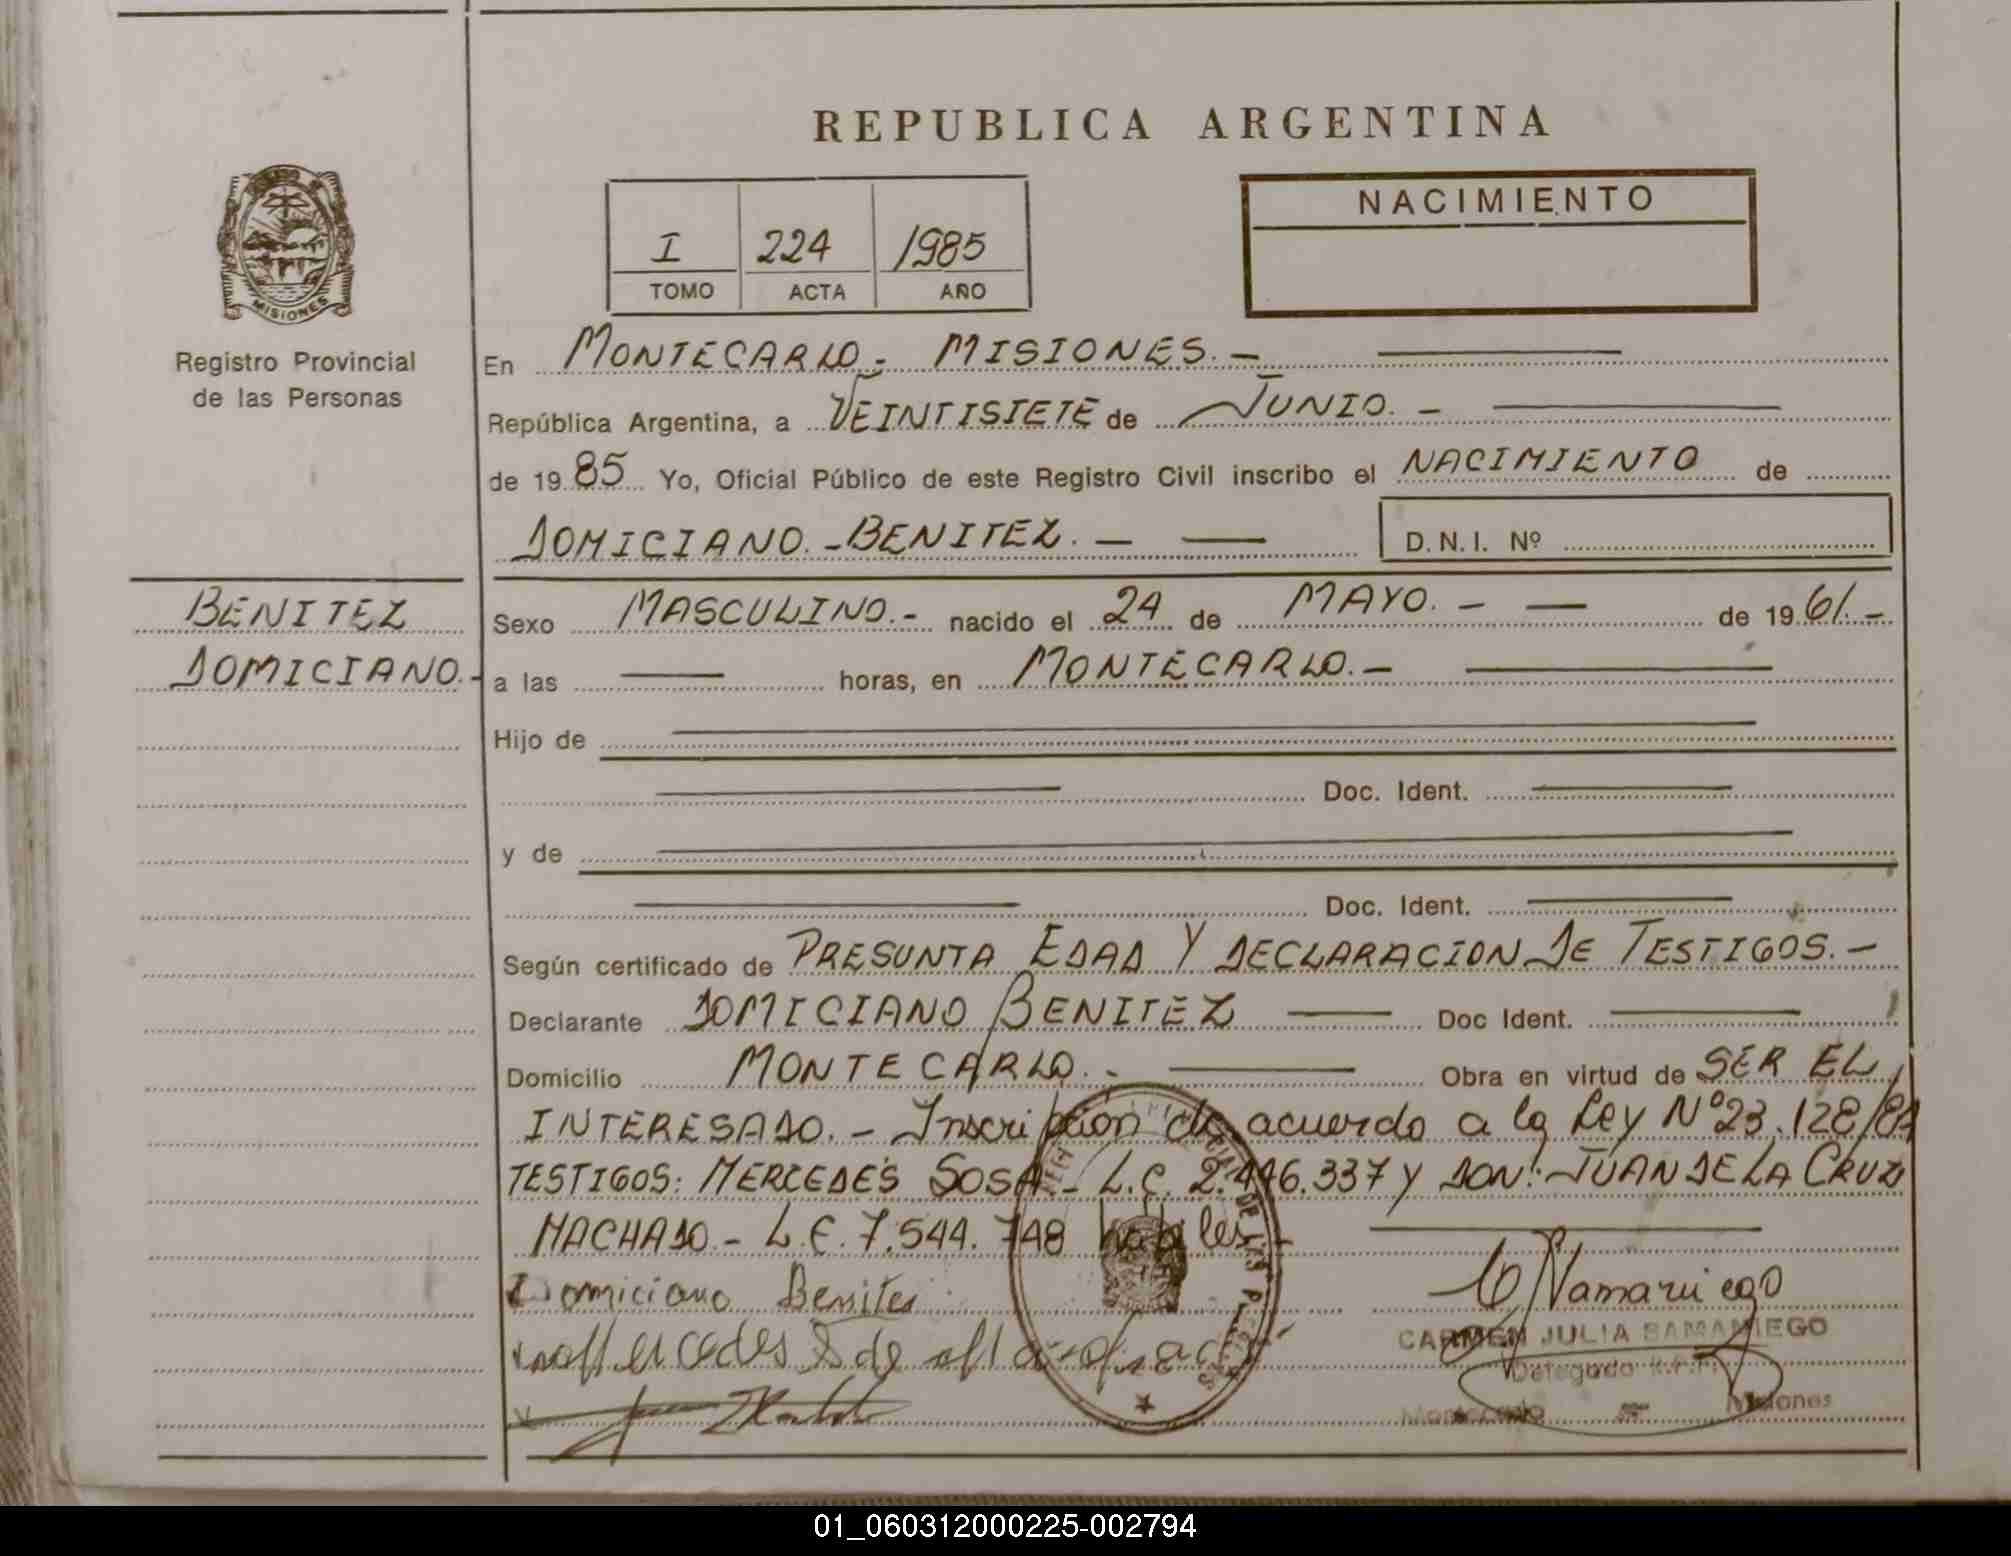 REPUBLICA ARGENTINA
MISIONES
Registro Provincial
de las Personas
I 224 1985
TOMO ACTA AÑO
NACIMIENTO
En MONTECARLO.- MISIONES.-
República Argentina, a VEINTISIETE de JUNIO.-
de 1985 Yo, Oficial Público de este Registro Civil inscribo el NACIMIENTO de
DOMICIANO.-BENITEZ.-
D.N.I. Nº
BENITEZ
DOMICIANO.-
Sexo MASCULINO.- nacido el 24 de MAYO.- de 1961.-
a las horas, en MONTECARLO.-
Hijo de
Doc. Ident.
y de
Doc. Ident.
Según certificado de PRESUNTA EDAD Y DECLARACION DE TESTIGOS.-
Declarante DOMICIANO BENITEZ Doc Ident.
Domicilio MONTECARLO.- Obra en virtud de SER EL
INTERESADO.- Inscripción de acuerdo a la Ley Nº 23.128/84
TESTIGOS: MERCEDES SOSA - L.C. 2.446.337 y DON: JUAN DE LA CRUZ
MACHADO.- L.E. 7.544.748 hábiles.-
Domiciano Benites
Mercedes S de
CARMEN JULIA SAMANIEGO
Delegado R.P.P.
Montecarlo - Misiones
01_060312000225-002794